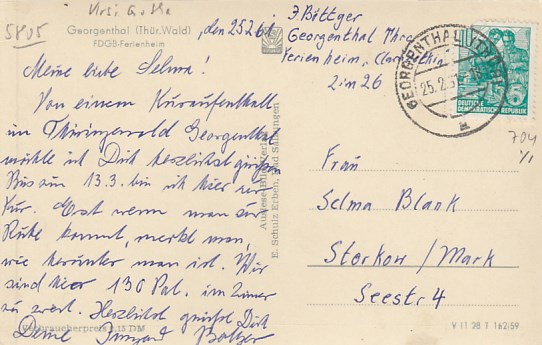 5405
Georgenthal (Thür. Wald)
FDGB-Ferienheim
, den 25.2.61.
Meine liebe Selma!
Von einem Kuraufenthalt
im Thüringerwald Georgenthal
möchte ich Dich herzlichst grüßen
Bis zum 13.3. bin ich hier zur
Kur. Erst wenn man zur
Ruhe kommt, merkt man,
wie herunter man ist. Wir
sind hier 130 Pat. im Zimmer
zu zweit. Herzlichst grüßt Dich
Deine Irmgard Böttger
Verbraucherpreis 0,15 DM
Auslese-Bild-Verlag
E. Schulz Erben, Bad Salzungen
J. Böttger
Georgenthal Thür.
Ferienheim,
Zim 26
GEORGENTHAL (THÜR)
25.2.61
DEUTSCHE
DEMOKRATISCHE REPUBLIK
704
Y1
Frau
Selma Blank
Storkow / Mark
Seestr 4
V 11 28 T 162/59